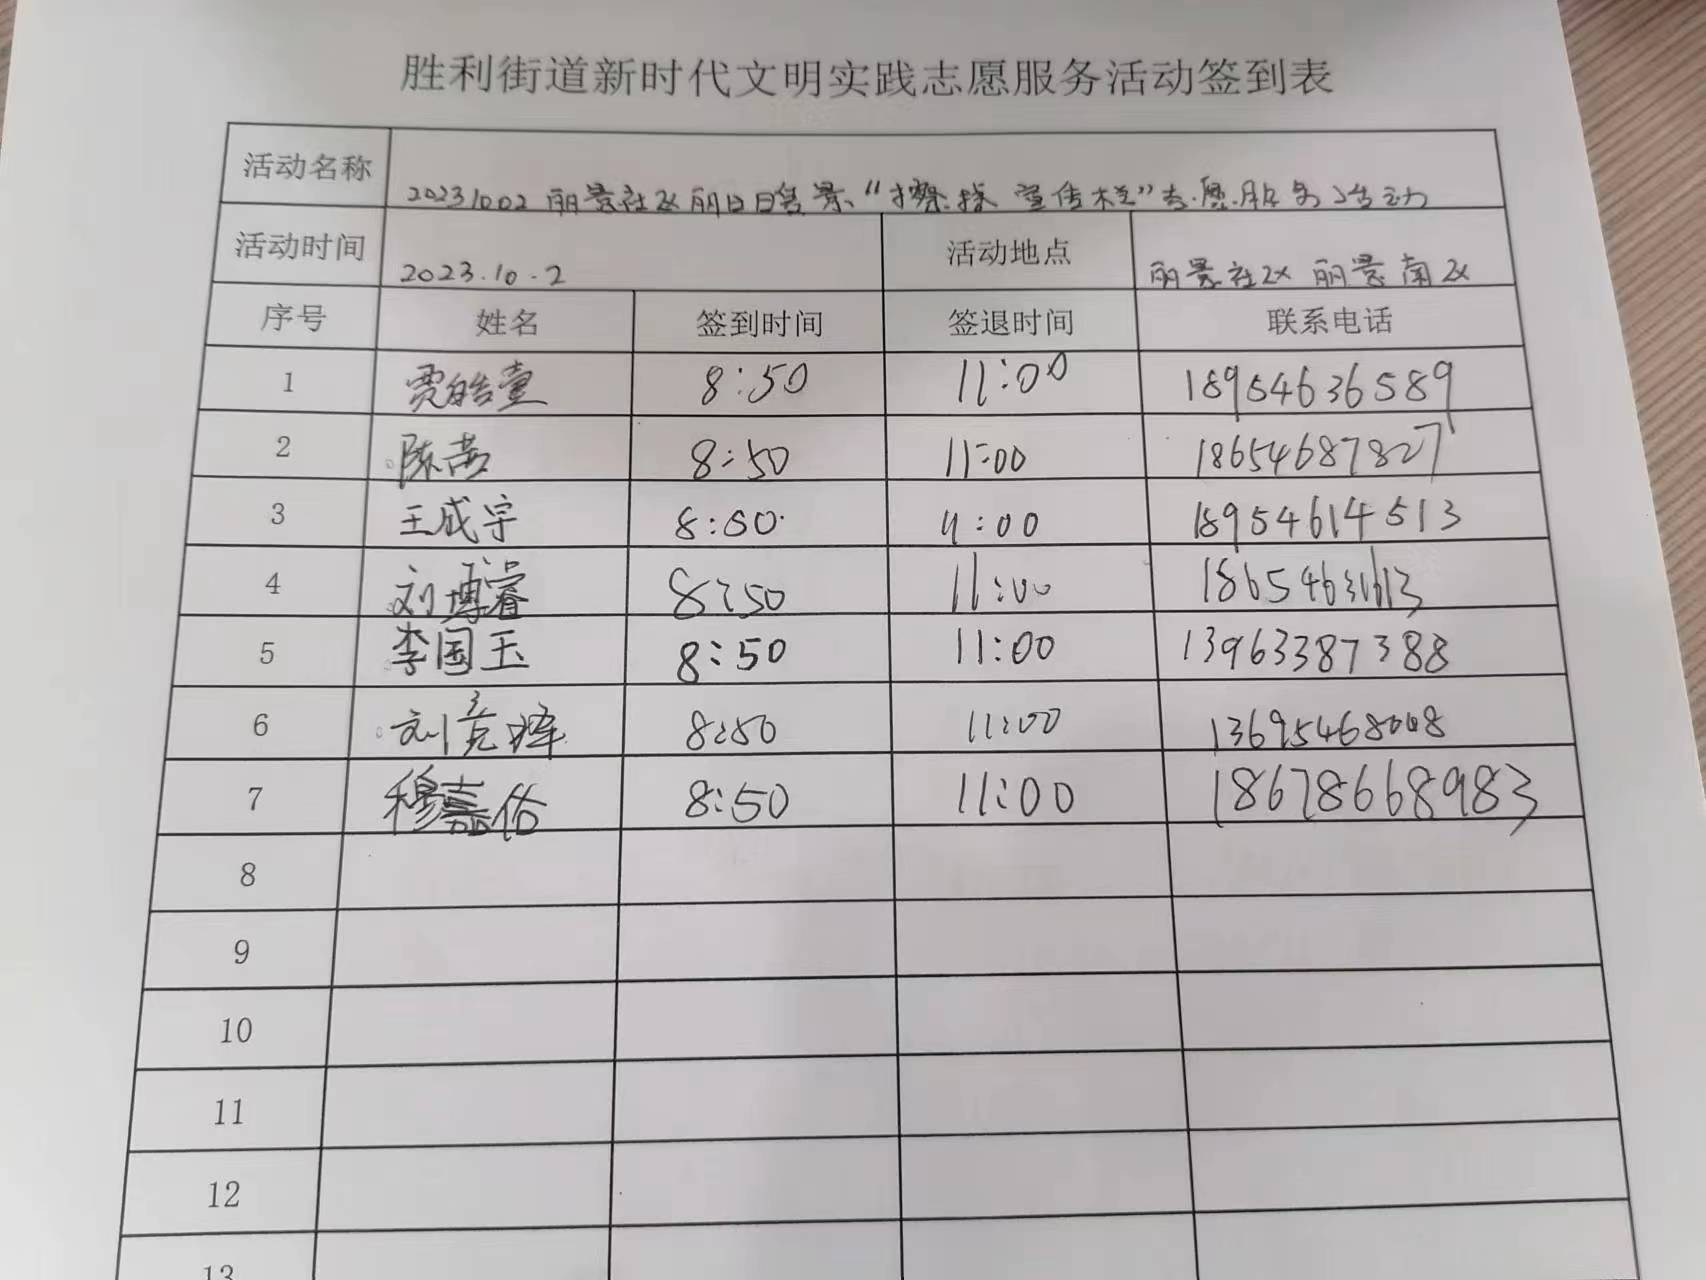 胜利街道新时代文明实践志愿服务活动签到表
活动名称 20231002 丽景社区丽日日皆景“擦擦 宣传栏”志愿服务活动
活动时间 2023.10.2 活动地点 丽景社区 丽景南区
序号 姓名 签到时间 签退时间 联系电话
1 贾皓壹 8:50 11:00 18954636589
2 陈茜 8:50 11:00 18654687827
3 王成宇 8:50 11:00 18954614513
4 刘博睿 8:50 11:00 18654631613
5 李国玉 8:50 11:00 13963387388
6 刘竞 8:50 11:00 13695468048
7 穆嘉佑 8:50 11:00 18678668983
8
9
10
11
12
13